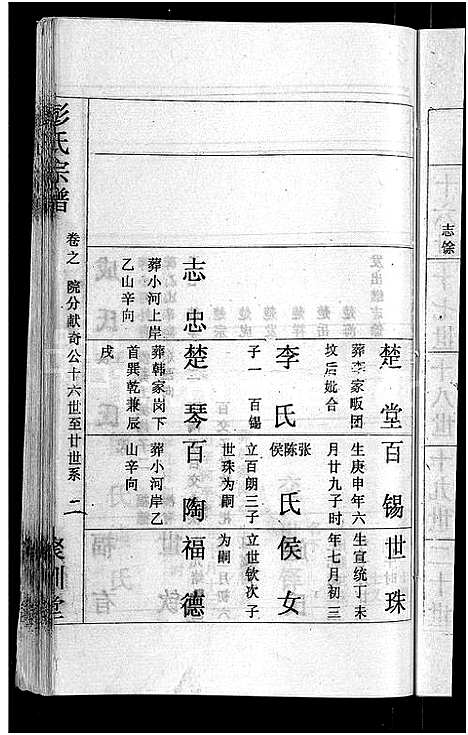 志馀
志忠
葬小河上岸
乙山辛向
楚堂
葬李家畈团
坟后妣合
李氏
子一 百锡
楚琴
葬韩家岗下
首巽乾兼辰
戌
百锡
生庚申年六
月廿九子时
张陈侯氏
立百朗三子
世珠为嗣
百陶
葬小河岸乙
山辛向
世珠
生宣统丁未
年七月初三
侯女
立世钦次子
为嗣
福德
彭氏宗谱
卷之 院分献奇公十六世至廿世系 二